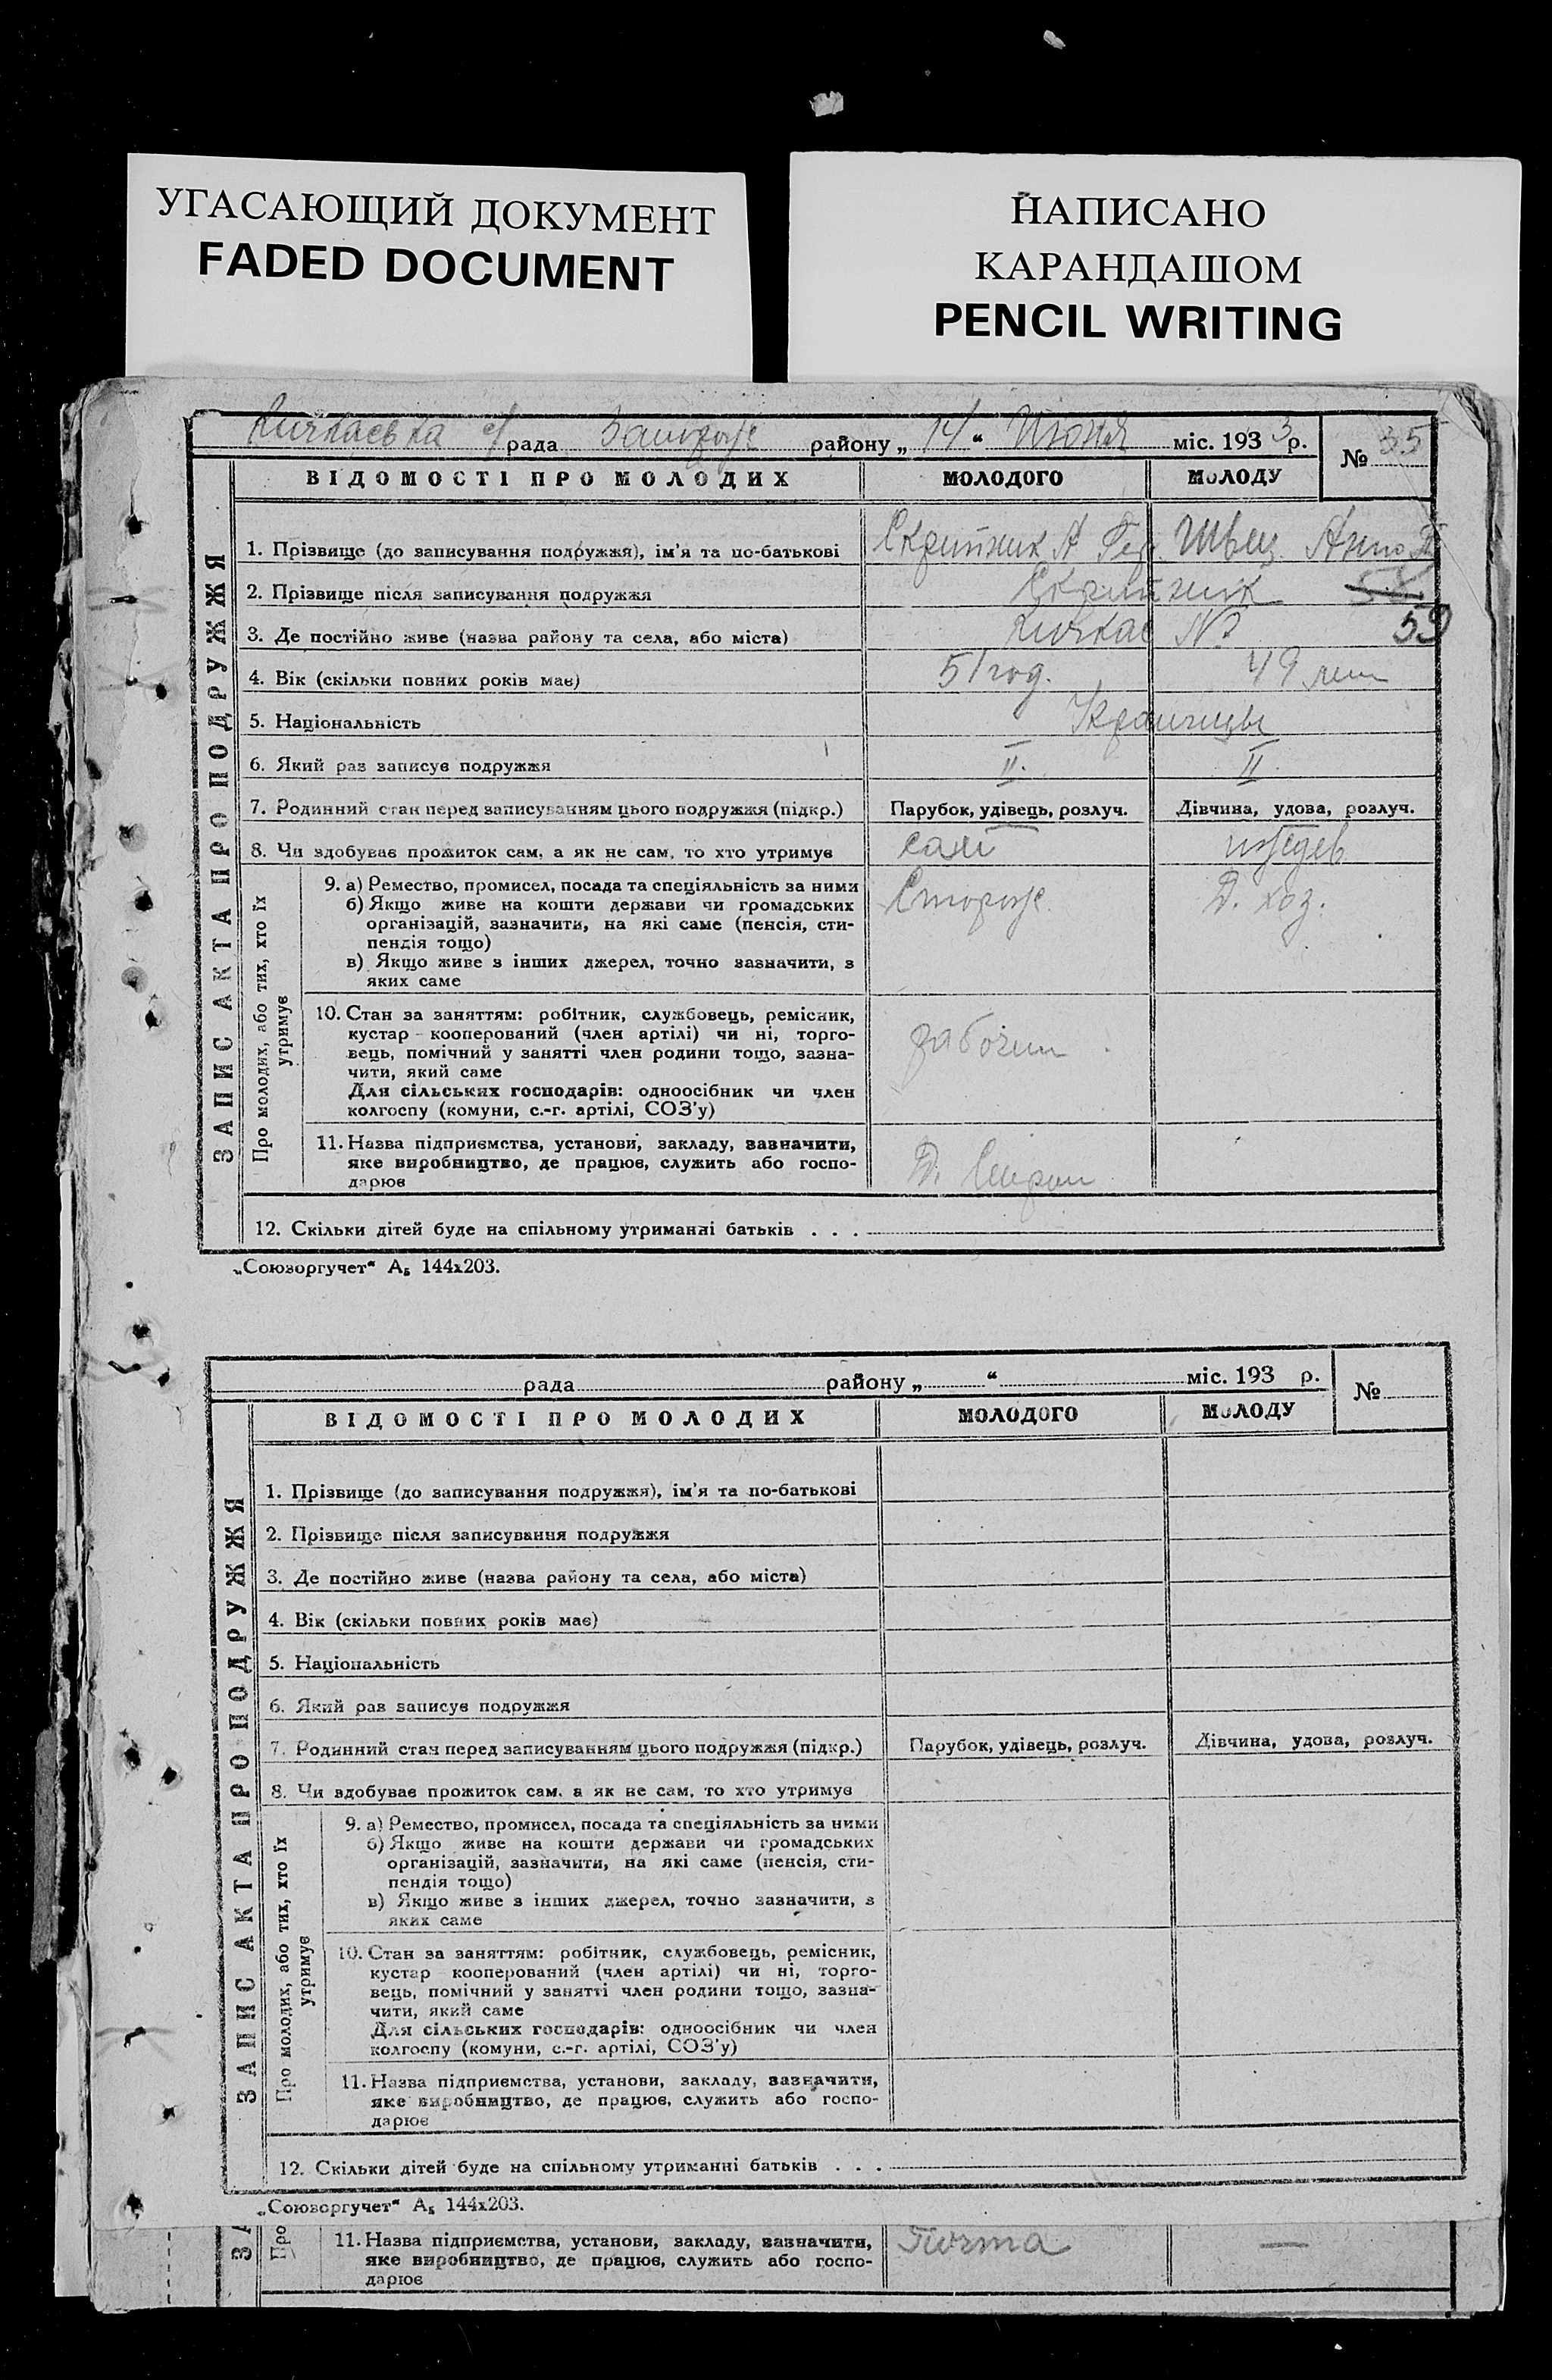 УГАСАЮЩИЙ ДОКУМЕНТ
FADED DOCUMENT
НАПИСАНО
КАРАНДАШОМ
PENCIL WRITING
Кичкаевка с/рада району „14“ Июня міс. 1933 р.
№ 35
ВІДОМОСТІ ПРО МОЛОДИХ МОЛОДОГО МОЛОДУ
ЗАПИС АКТА ПРО ПОДРУЖЖЯ
1. Прізвище (до записування подружжя), ім'я та по-батькові Скрипник А Швец Анна
2. Прізвище після записування подружжя Скрипник
3. Де постійно живе (назва району та села, або міста) Кичкас №
59
4. Вік (скільки повних років має) 51 год. 49 лет
5. Національність Украинцы
6. Який раз записує подружжя II. II.
7. Родинний стан перед записуванням цього подружжя (підкр.) Парубок, удівець, розлуч. Дівчина, удова, розлуч.
8. Чи здобуває прожиток сам, а як не сам, то хто утримує сам иждев
Про молодих, або тих, хто їх
утримує
9. а) Ремество, промисел, посада та спеціяльність за ними Сторож Д. хоз.
б) Якщо живе на кошти держави чи громадських
організацій, зазначити, на які саме (пенсія, сти-
пендія тощо)
в) Якщо живе з інших джерел, точно зазначити, з
яких саме
10. Стан за заняттям: робітник, службовець, ремісник,
кустар - кооперований (член артілі) чи ні, торго-
вець, помічний у занятті член родини тощо, зазна- рабочий
чити, який саме
Для сільських господарів: одноосібник чи член
колгоспу (комуни, с.-г. артілі, СОЗ'у)
11. Назва підприємства, установи, закладу, зазначити,
яке виробництво, де працює, служить або госпо-
дарює
12. Скільки дітей буде на спільному утриманні батьків . . .
„Союзоргучет“ А5 144х203.
рада району „ “ міс. 193 р.
№
ВІДОМОСТІ ПРО МОЛОДИХ МОЛОДОГО МОЛОДУ
ЗАПИС АКТА ПРО ПОДРУЖЖЯ
1. Прізвище (до записування подружжя), ім'я та по-батькові
2. Прізвище після записування подружжя
3. Де постійно живе (назва району та села, або міста)
4. Вік (скільки повних років має)
5. Національність
6. Який раз записує подружжя
7. Родинний стан перед записуванням цього подружжя (підкр.) Парубок, удівець, розлуч. Дівчина, удова, розлуч.
8. Чи здобуває прожиток сам, а як не сам, то хто утримує
Про молодих, або тих, хто їх
утримує
9. а) Ремество, промисел, посада та спеціяльність за ними
б) Якщо живе на кошти держави чи громадських
організацій, зазначити, на які саме (пенсія, сти-
пендія тощо)
в) Якщо живе з інших джерел, точно зазначити, з
яких саме
10. Стан за заняттям: робітник, службовець, ремісник,
кустар кооперований (член артілі) чи ні, торго-
вець, помічний у занятті член родини тощо, зазна-
чити, який саме
Для сільських господарів: одноосібник чи член
колгоспу (комуни, с.-г. артілі, СОЗ'у)
11. Назва підприємства, установи, закладу, зазначити,
яке виробництво, де працює, служить або госпо-
дарює
12. Скільки дітей буде на спільному утриманні батьків . . .
„Союзоргучет“ А5 144х203.
ЗА
Про
11. Назва підприємства, установи, закладу, зазначити, Почта —
яке виробництво, де працює, служить або госпо-
дарює